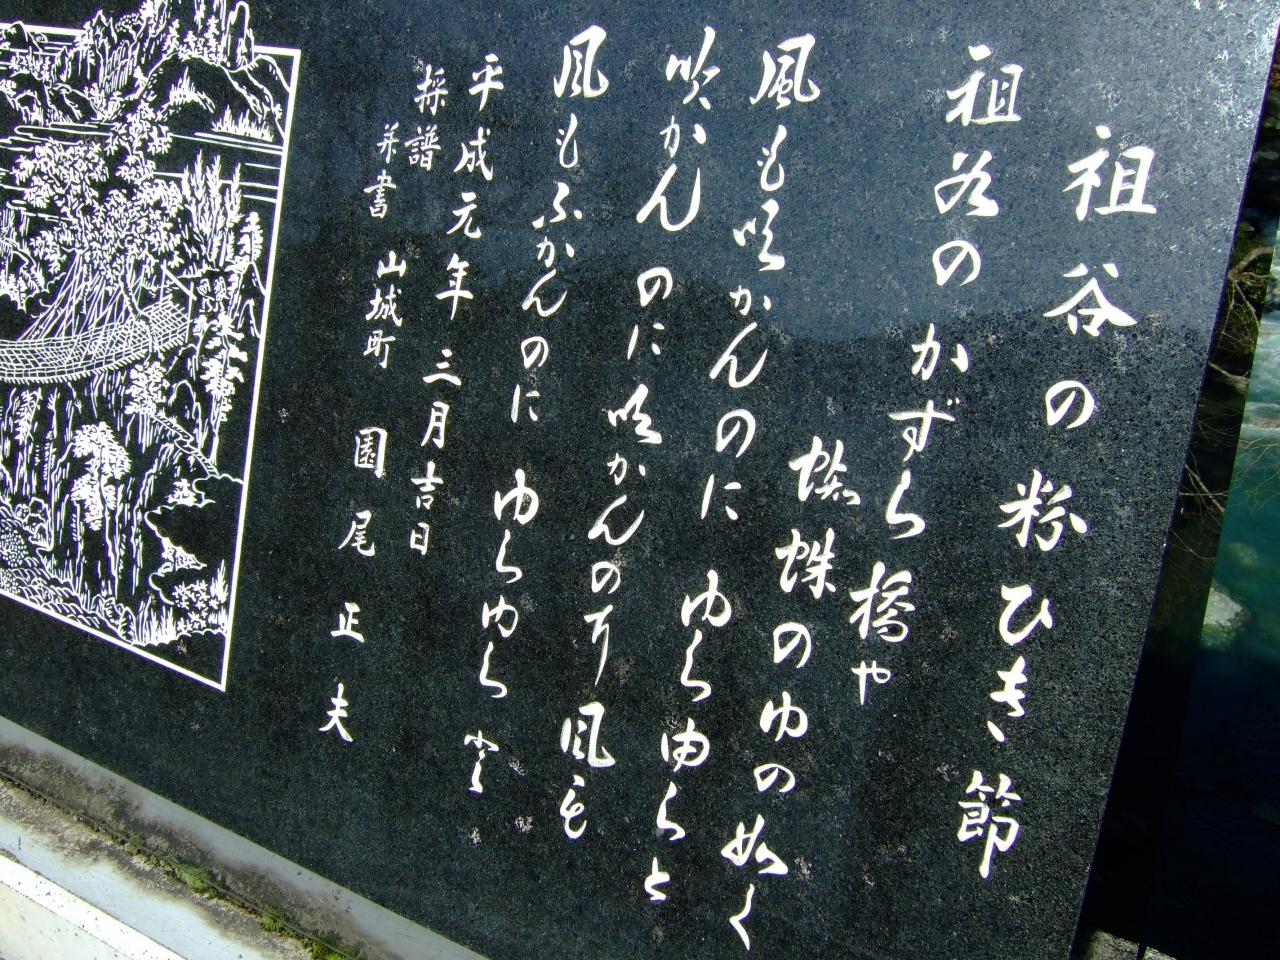 祖谷の粉ひき節
祖谷のかずら橋や
蜘蛛のゆの如く
風も吹かんのに ゆら由らと
吹かんのに吹かんのに 風も
風もふかんのに ゆらゆらと
平成元年 三月吉日
採譜
并書 山城町 園尾正夫